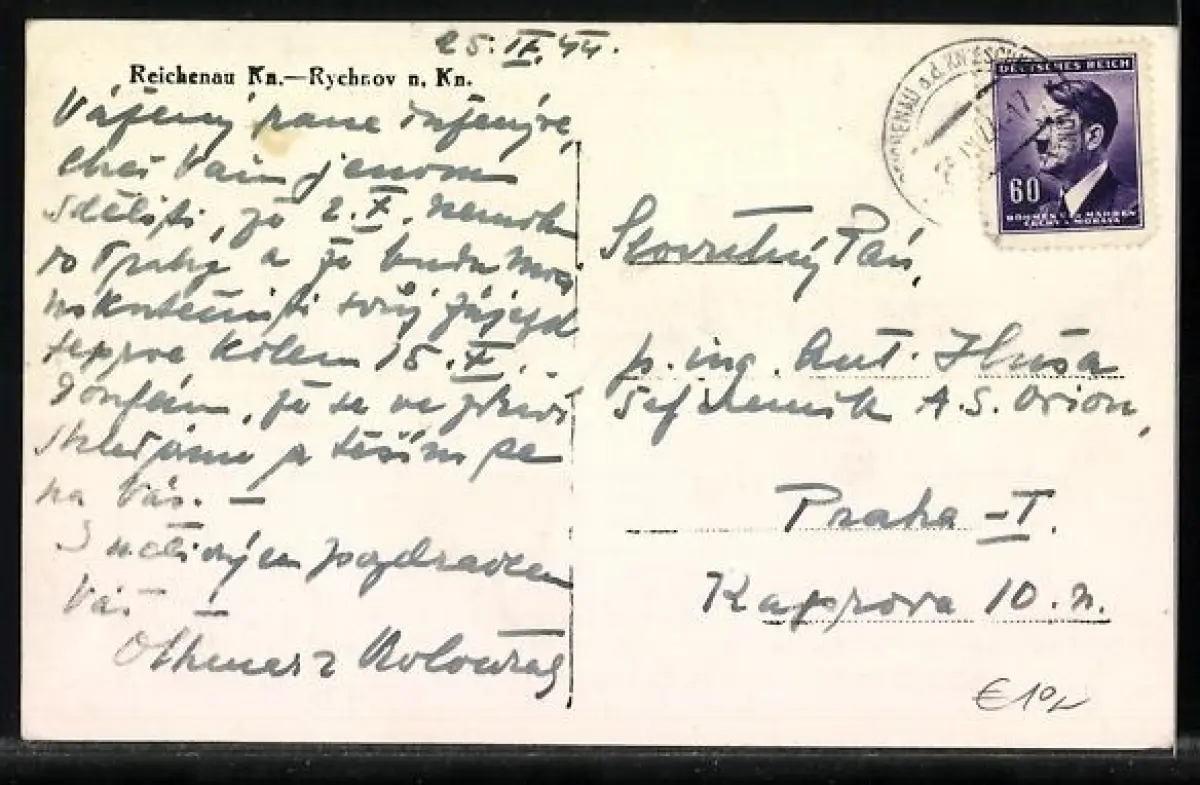 25. IX. 44.
Reichenau Kn.—Rychnov n. Kn.
Vážený pane inženýre,
chci Vám jenom
sděliti, že 2.X. nemohu
do Prahy a že budu moci
uskutečniti svůj zájezd
teprve kolem 15.X. –
Doufám, že se ve zdraví
shledáme a těším se
na Vás. –
S uctivým pozdravem
Váš –
Othmar z Kolowrat
DEUTSCHES REICH
60
BÖHMEN U. MÄHREN
ČECHY A MORAVA
REICHENAU a.d. KNIESCHNA
Slovutný Pán,
p. ing. Ant. Hluša
tajemník A.S. Orion,
Praha – I.
Kaprova 10. n.
€10,-